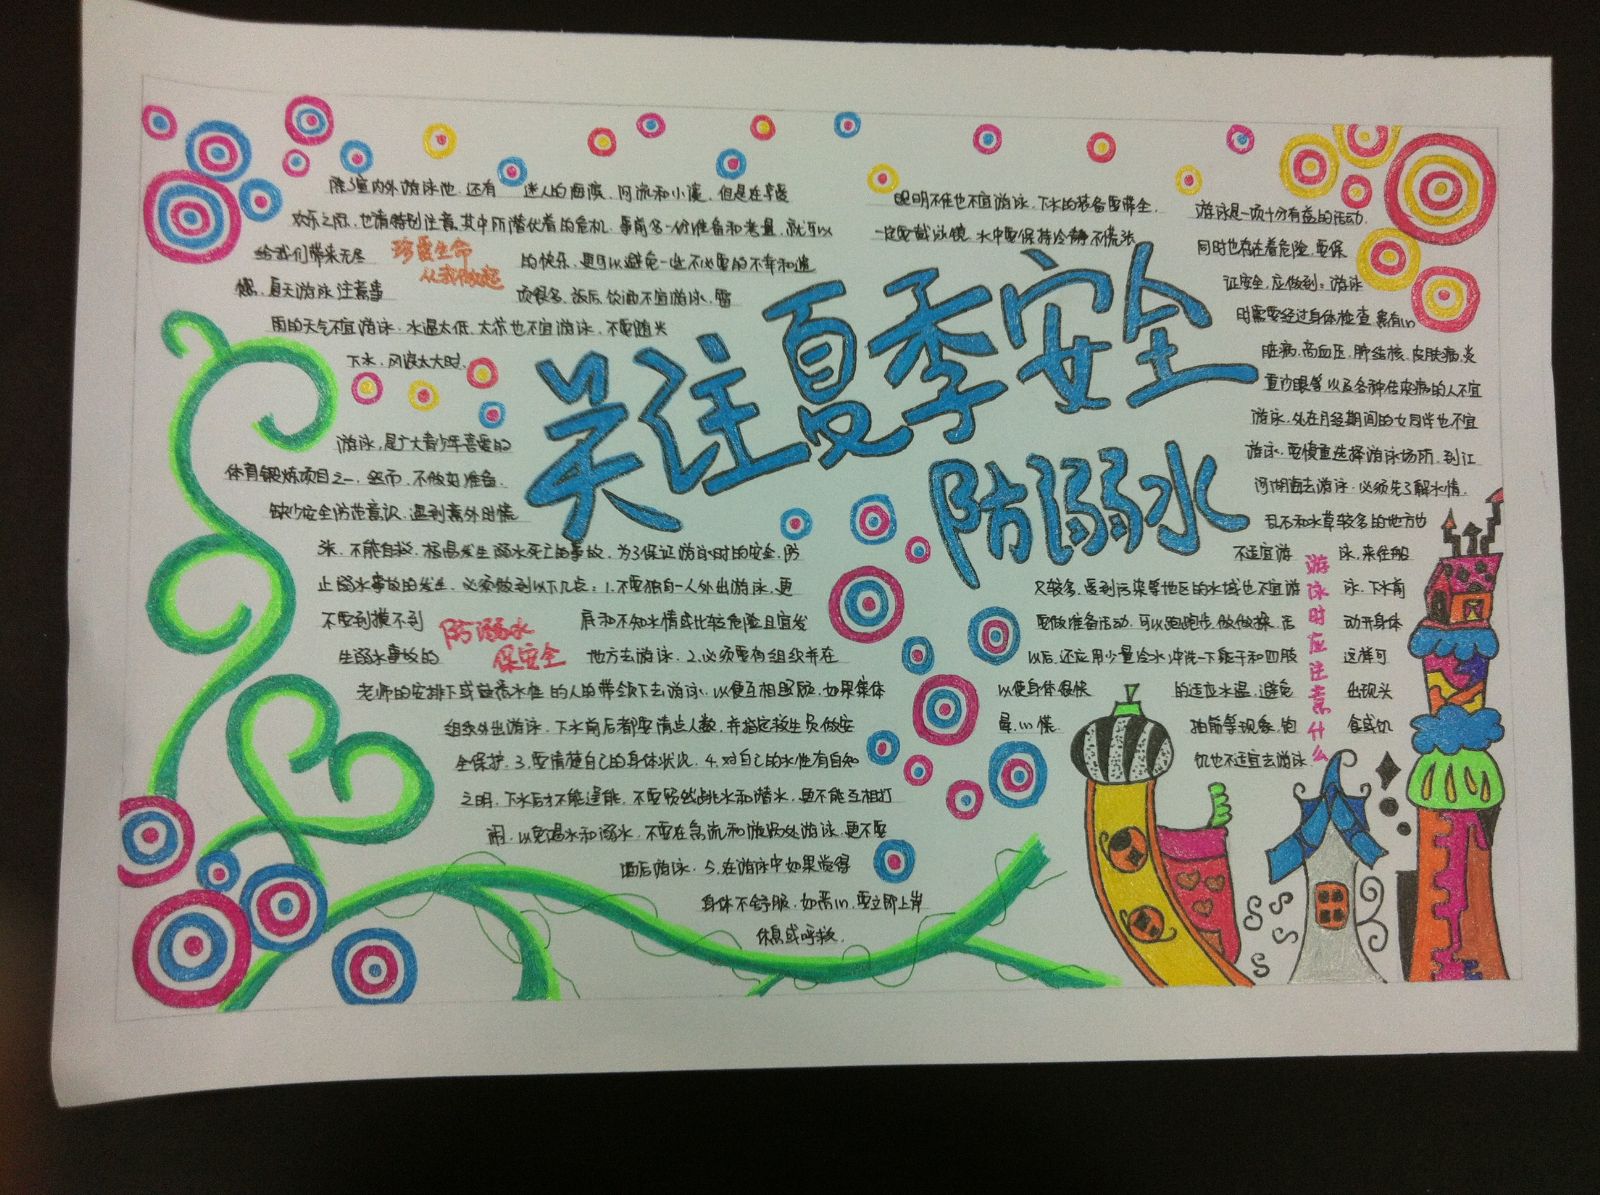 关注夏季安全
防溺水
除了室内外游泳池,还有迷人的海滨、河流和小溪,但是在享受
欢乐之际,也请特别注意其中所潜伏着的危机,事前多一份准备和考量,就可以
给我们带来无尽的快乐,更可以避免一些不必要的不幸和遗
憾,夏天游泳注意事项很多,饭后、饮酒不宜游泳,雷
雨的天气不宜游泳,水温太低、太凉也不宜游泳,不要随兴
下水,风浪太大时、
珍爱生命
从我做起
照明不佳也不宜游泳,下水的装备要带全,
一定要戴泳镜,水中要保持冷静不慌张
游泳,是广大青少年喜爱的
体育锻炼项目之一,然而,不做好准备、
缺少安全防范意识,遇到意外时慌
张、不能自救,极易发生溺水死亡的事故,为了保证游泳时的安全,防
止溺水事故的发生,必须做到以下几点:1.不要独自一人外出游泳,更
不要到摸不到底和不知水情或比较危险且宜发
生溺水事故的地方去游泳.2.必须要有组织并在
老师的安排下或熟悉水性的人的带领下去游泳.以便互相照顾,如果集体
组织外出游泳,下水前后都要清点人数,并指定救生员做安
全保护.3.要清楚自己的身体状况,4.对自己的水性有自知
之明,下水后才不能逞能,不要贸然跳水和潜水,更不能互相打
闹,以免喝水和溺水,不要在急流和漩涡处游泳,更不要
酒后游泳.5.在游泳中如果觉得
身体不舒服,如恶心,要立即上岸
休息或呼救.
防溺水
保安全
游泳是一项十分有益的活动,
同时也存在着危险,要保
证安全,应做到:游泳
时需要经过身体检查,患有心
脏病、高血压、肺结核、皮肤病、炎
重沙眼等以及各种传染病的人不宜
游泳,处在月经期间的女同学也不宜
游泳,要慎重选择游泳场所,到江
河湖海去游泳,必须先了解水情,
且不和水草较多的地方也
不适宜游泳,来往船
只较多、遇到污染等地区的水域也不宜游泳,下水前
要做准备活动,可以跑跑步、做做操,活动开身体
以后,还应用少量冷水冲洗一下躯干和四肢这样可
以使身体很快的适应水温,避免出现头
晕、心慌、抽筋等现象,饱食或饥
饥也不适宜去游泳
游泳时应注意什么